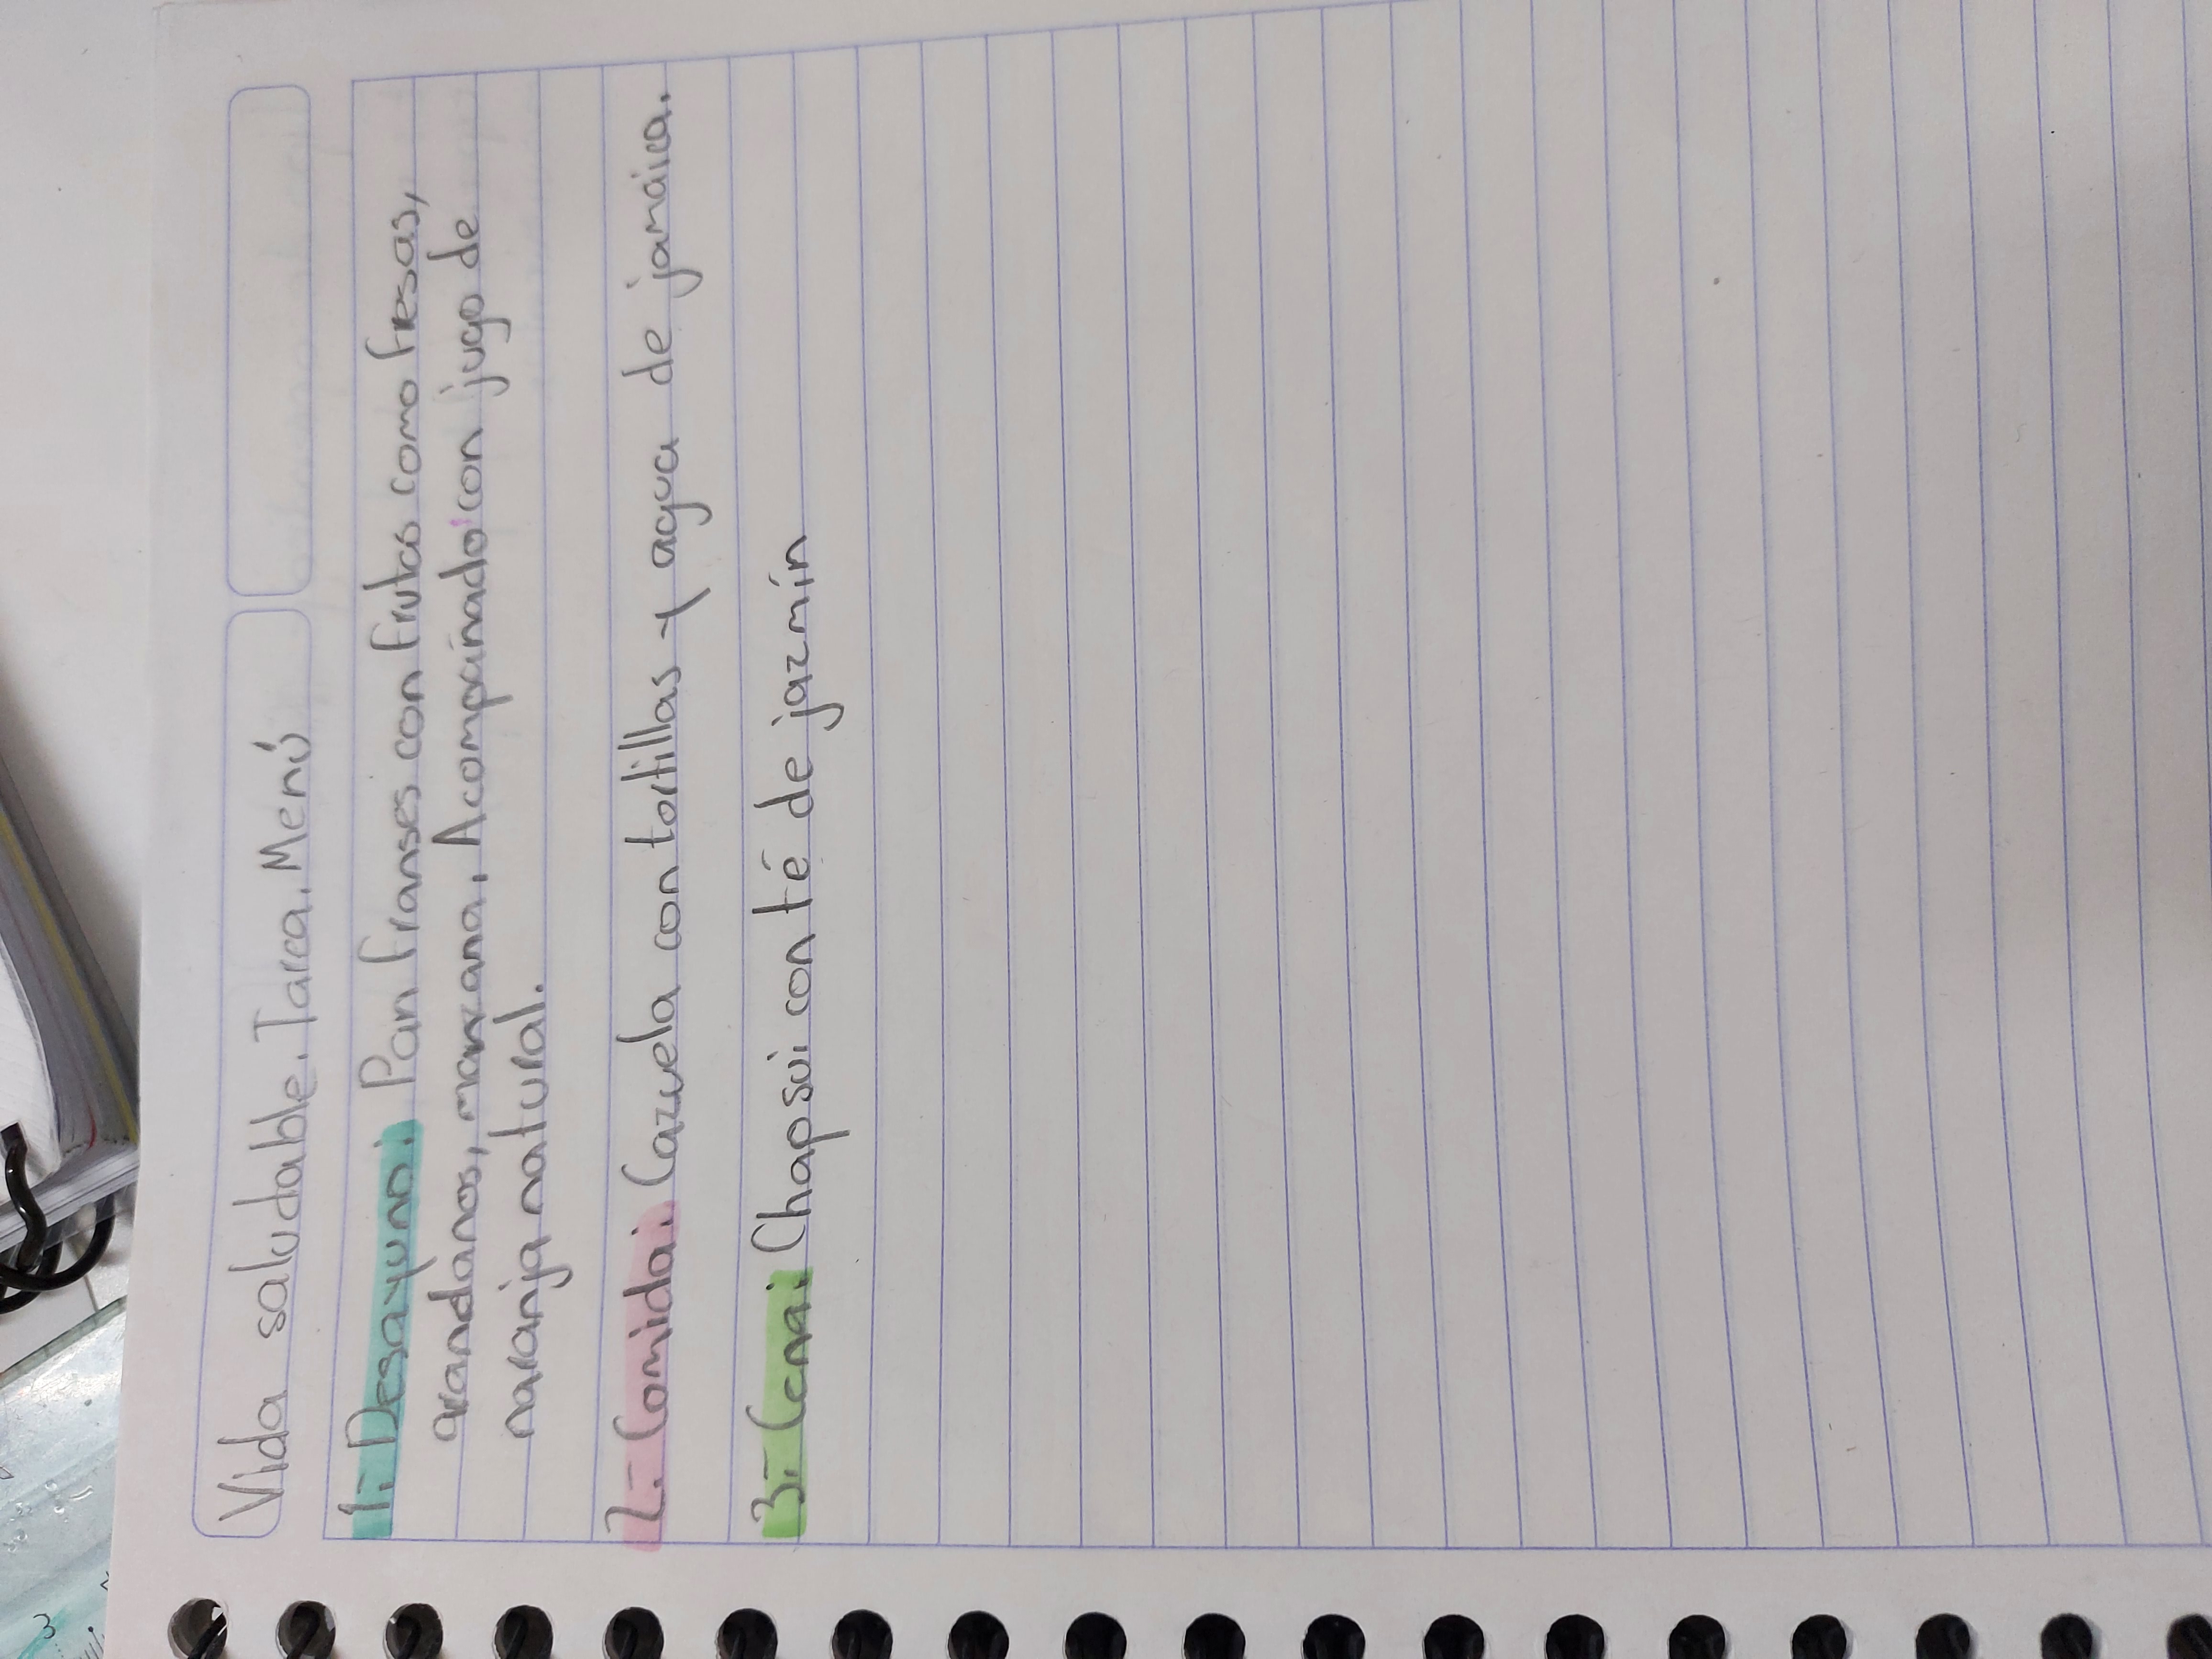 Vida saludable. Tarea. Menú
1.- Desayuno: Pan franses con frutas como fresas,
arandanos, manzana. Acompañado con jugo de
naranja natural.
2.- Comida: Cazuela con tortillas y agua de jamaica.
3.- Cena: Chapsui con té de jazmín
3